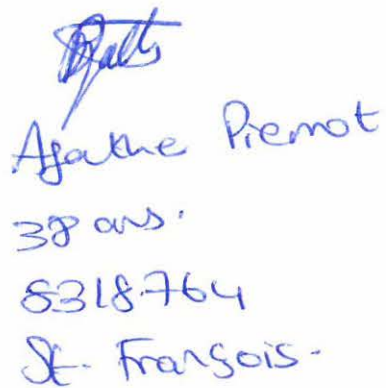 Agathe Pierrot
38 ans.
8318.764
St. François.